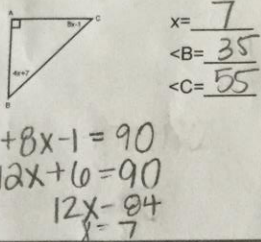 A
8x-1
C
4x+7
B
x= 7
<B= 35
<C= 55
+8x-1=90
12x+6=90
12x=84
x=7